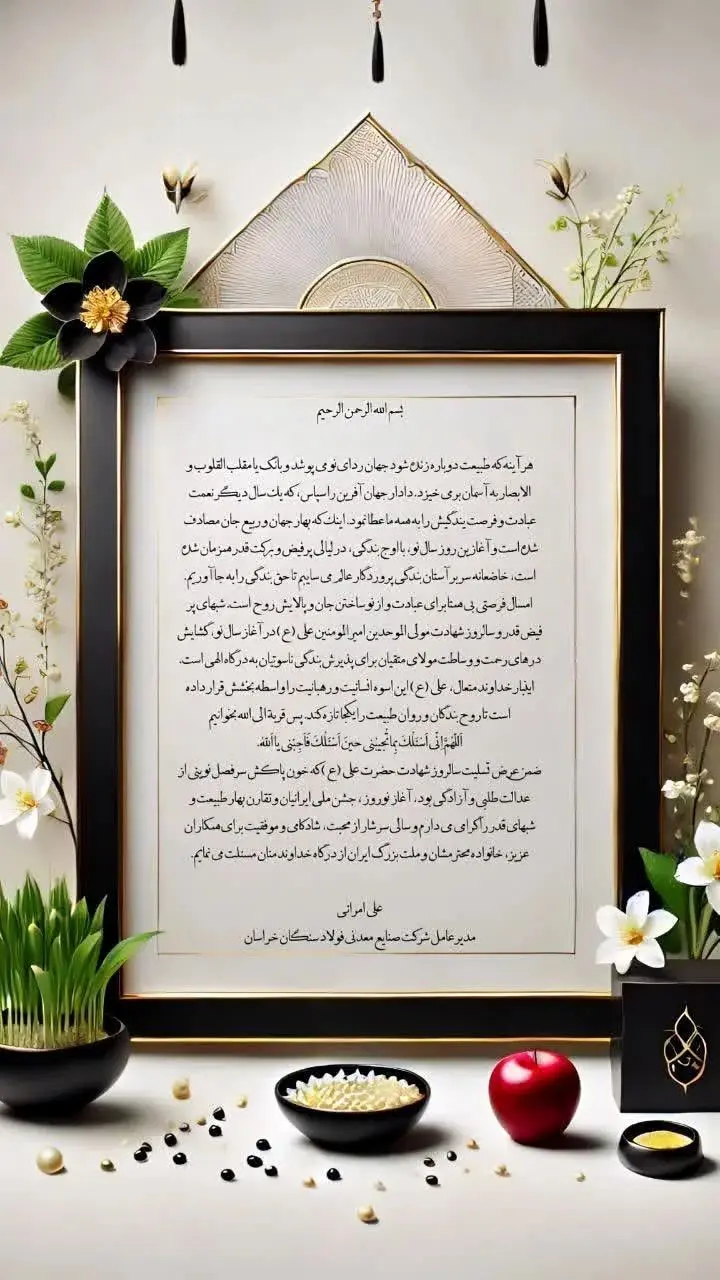 بسم الله الرحمن الرحیم
هر آینه که طبیعت دوباره زنده شود جهان ردای نو می پوشد و بانگ یا مقلب القلوب و
الابصار به آسمان بر می خیزد. دادار جهان آفرین را سپاس، که یک سال دیگر نعمت
عبادت و فرصت بندگیش را به همه ما عطا نمود. اینک که بهار جهان و ربیع جان مصادف
شده است و آغازین روز سال نو، با اوج بندگی، در لیالی پر فیض و برکت قدر همزمان شده
است، خاضعانه سر بر آستان بندگی پروردگار عالم می ساییم تا حق بندگی را به جا آوریم.
امسال فرصتی بی همتا برای عبادت و از نو ساختن جان و پالایش روح است. شبهای پر
فیض قدر و سالروز شهادت مولی الموحدین امیر المومنین علی (ع) در آغاز سال نو، گشایش
درهای رحمت و وساطت مولای متقیان برای پذیرش بندگی ناسوتیان به درگاه الهی است.
اینبار خداوند متعال، علی (ع) این اسوه انسانیت و رهبانیت را واسطه بخشش قرار داده
است تا روح بندگان و روان طبیعت را یکجا تازه کند. پس قربة الی الله بخوانیم
اَللّهُمَّ اِنّی اَسْئَلُکَ بِما تُجیبُنی حینَ اَسْئَلُکَ فَاَجِبْنی یا اَللهُ.
ضمن عرض تسلیت سالروز شهادت حضرت علی (ع) که خون پاکش سرفصل نوینی از
عدالت طلبی و آزادگی بود. آغاز نوروز، جشن ملی ایرانیان و تقارن بهار طبیعت و
شبهای قدر را گرامی می دارم و سالی سرشار از محبت، شادکامی و موفقیت برای همکاران
عزیز، خانواده محترمشان و ملت بزرگ ایران از درگاه خداوند منان مسئلت می نمایم.
علی امرانی
مدیر عامل شرکت صنایع معدنی فولاد سنگان خراسان